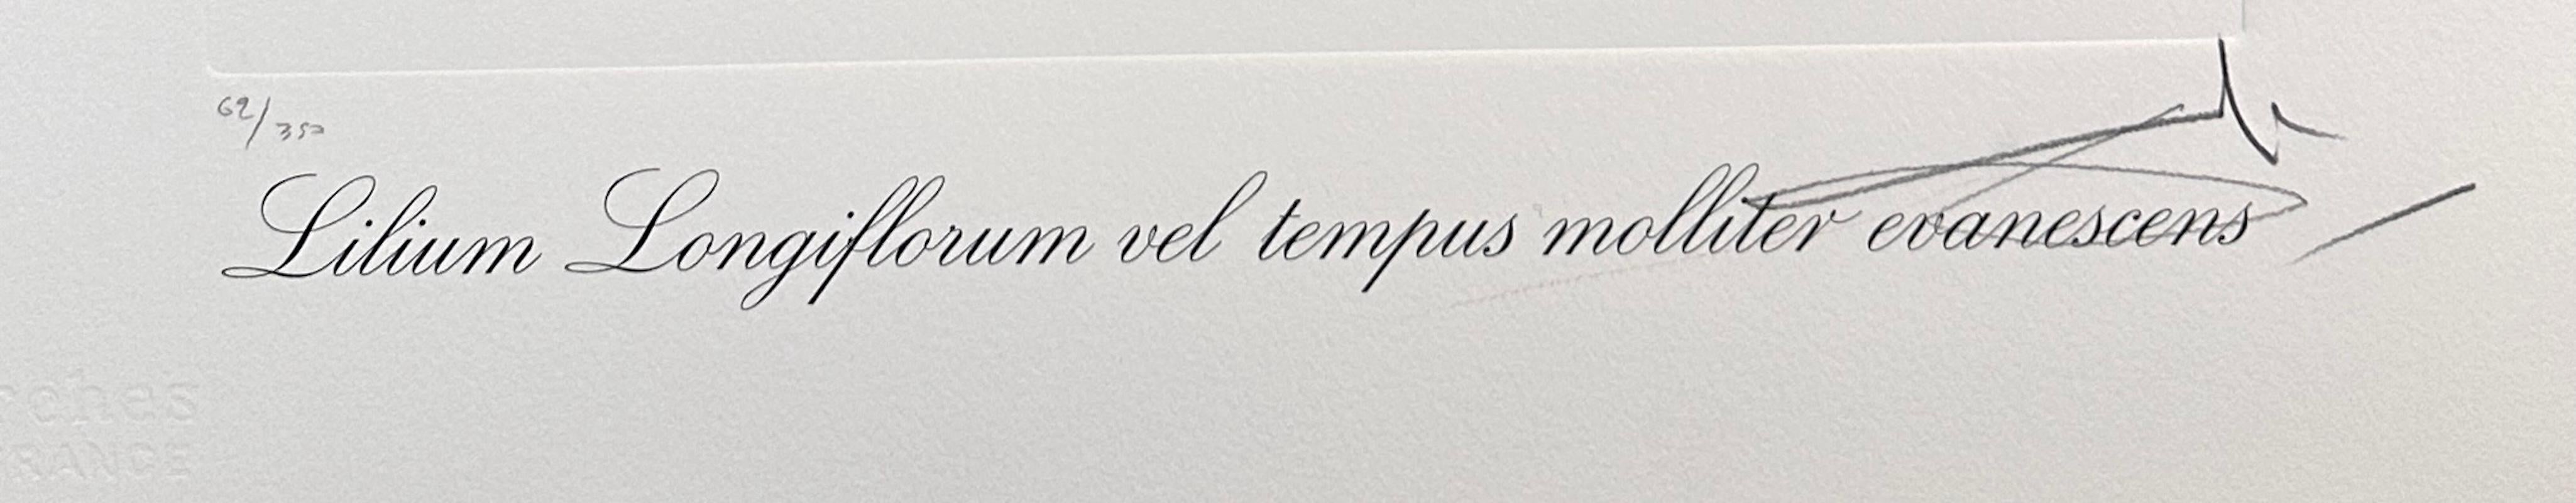 62/350
Lilium Longiflorum vel tempus molliter evanescens
rches
RANCE